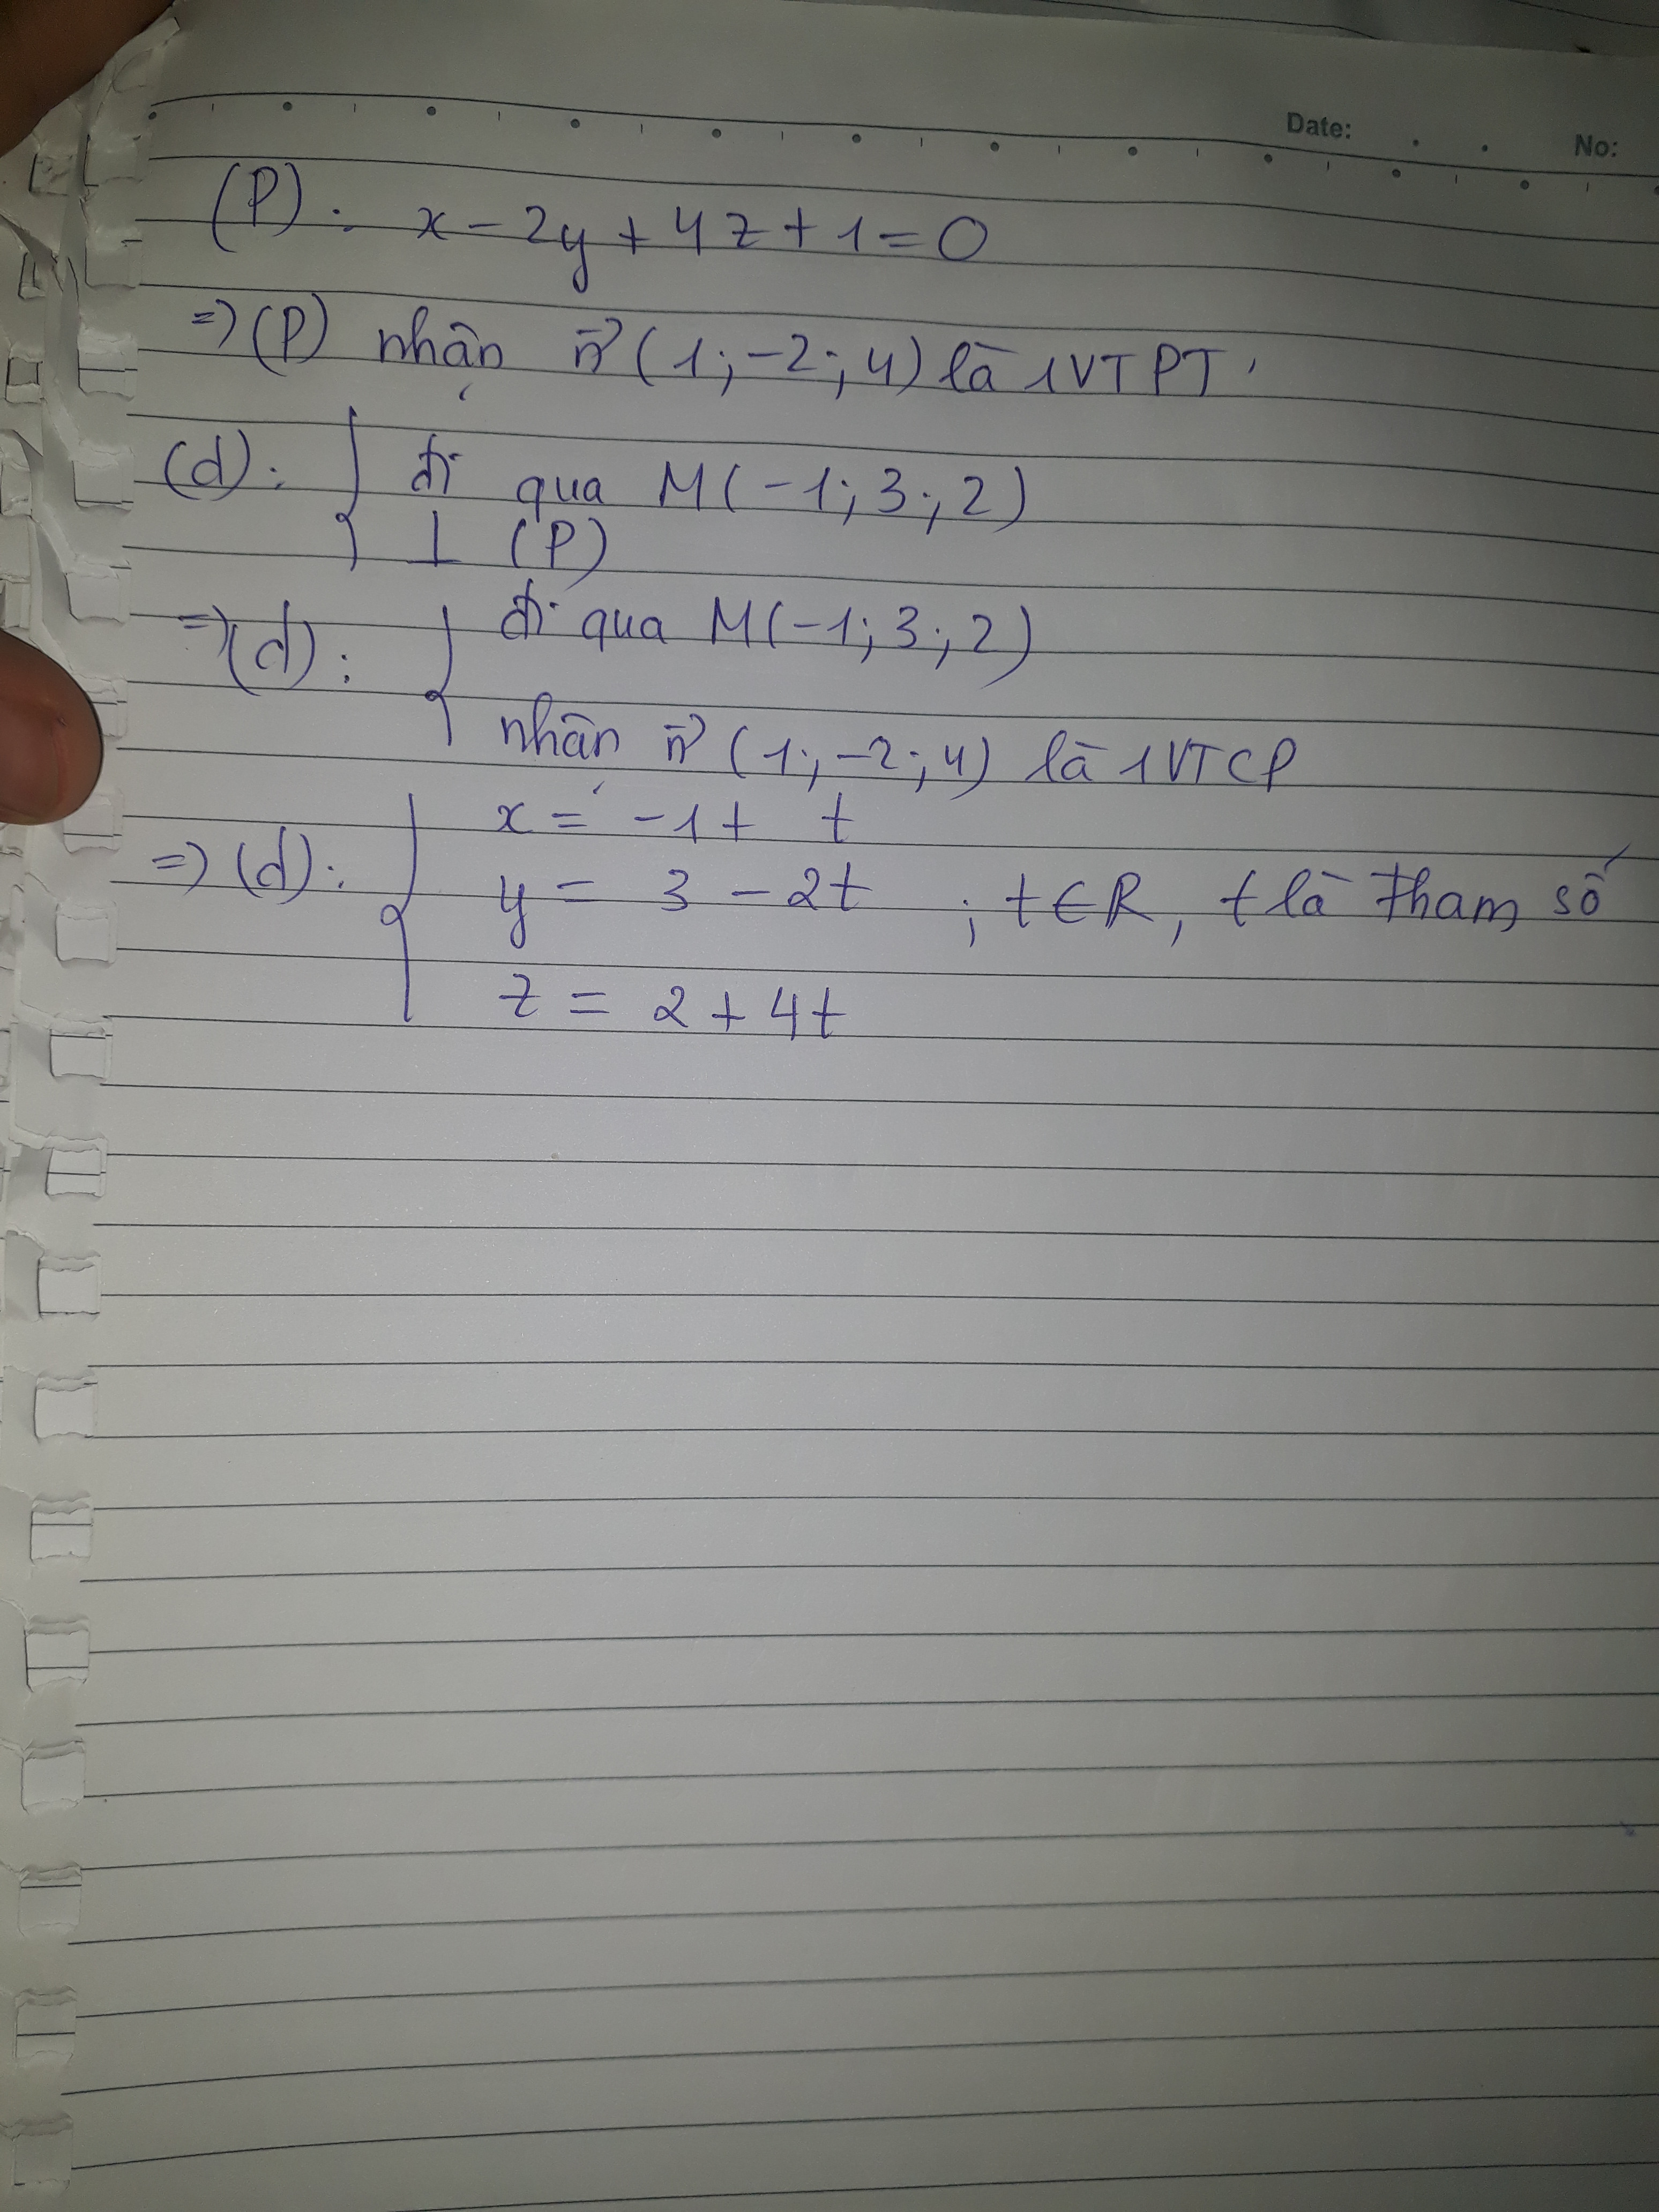 Date: No:
(P): x - 2y + 4z + 1 = 0
=> (P) nhận n⃗ (1; -2; 4) là 1 VTPT.
(d): { đi qua M(-1; 3; 2)
⊥ (P)
=> (d): { đi qua M(-1; 3; 2)
nhận n⃗ (1; -2; 4) là 1 VTCP
x = -1 + t
=> (d): { y = 3 - 2t ; t ∈ R, t là tham số
z = 2 + 4t